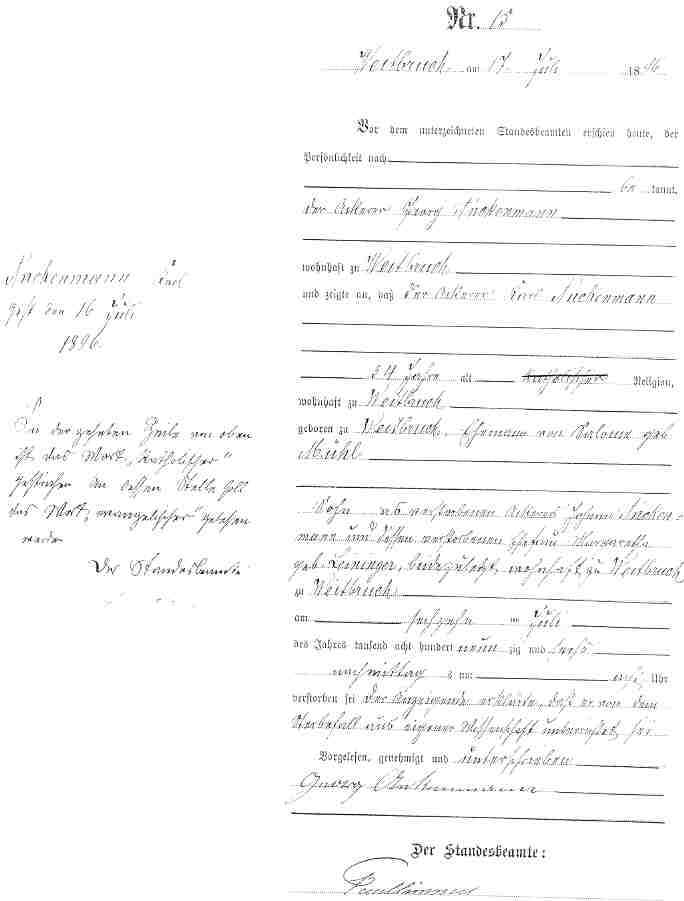 Nr. 15
Weitbruch am 17. Juli 1896
Vor dem unterzeichneten Standesbeamten erschien heute, der
Persönlichkeit nach
be kannt,
der Ackerer Georg Nuckenmann
wohnhaft zu Weitbruch
und zeigte an, daß der Ackerer Karl Nuckenmann
54 Jahre alt katholischer Religion,
wohnhaft zu Weitbruch
geboren zu Weitbruch, Ehemann von Salome geb
Mühl
Sohn des verstorbenen Ackerers Johann Nucken-
mann und dessen verstorbenen Ehefrau Margaretha
geb. Leininger, beide zuletzt wohnhaft zu Weitbruch
zu Weitbruch
am sechzehn Juli
des Jahres tausend acht hundert neun zig und sechs
nachmittag um acht Uhr
verstorben sei Der Anzeigende erklärte, daß er von dem
Sterbefall aus eigener Wissenschaft unterrichtet sei
Vorgelesen, genehmigt und unterschrieben
Georg
Der Standesbeamte:
Nuckenmann Karl
gest den 16 Juli
1896.
In der zehnten Zeile von oben
ist das Wort „katholischer"
gestrichen An dessen Stelle soll
das Wort „evangelischer" gelesen
werden
Der Standesbeamte